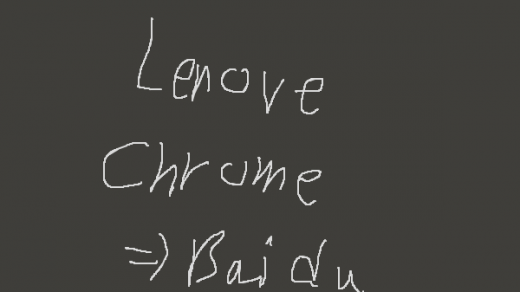 Lenove
Chrome
=> Baidu